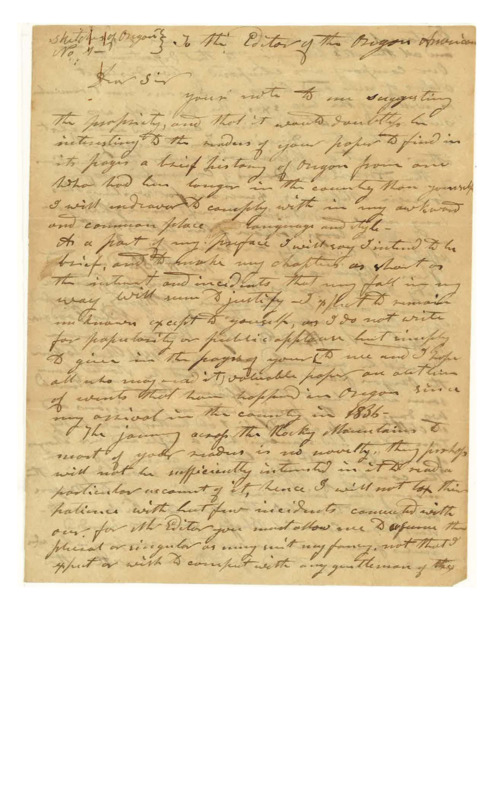 Sketch of Oregon } To the Editor of the Oregon American
No. 1
Dear Sir
your note to me suggesting
the propriety, and that it would doubtless be
interesting to the readers of your paper to find in
its pages a brief history of Oregon from one
who had been longer in the country than yourself
I will endeavor to comply with in my awkward
and common place language and style-
As a part of my preface I will say I intend to be
brief, and to make my chapters as short as
the interest and incidents that may fall in my
way will seem to justify I expect to remain
unknown except to yourself, as I do not write
for popularity or public applause but simply
to give in the pages of your (to me and I hope
all who may read it) valuable paper an outline
of events that have happed in Oregon since
my arrival in the country in 1836-
The journey across the Rocky Mountains to
most of your readers is no novelty. they perhaps
will not be sufficiently interested in it to read a
particular account of it, hence I will not tax their
patience with but few incidents connected with
our. for Mr Editor you must allow me to assume the
plural or singular as may suit my fancy, not that I
expect or wish to compete with any gentleman of the